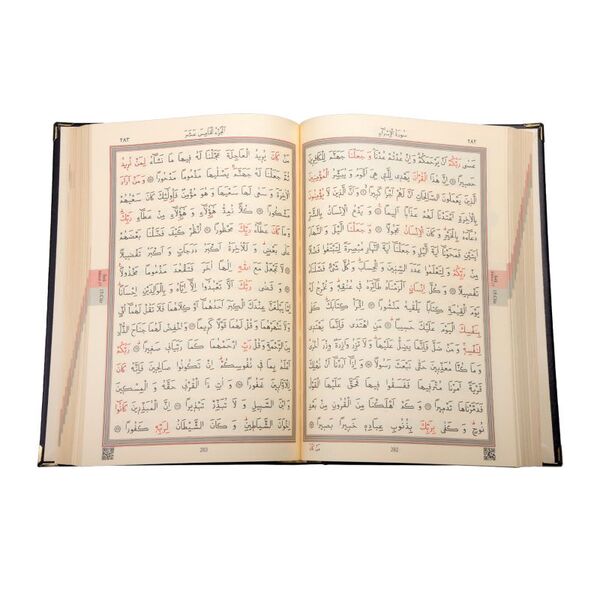 سورة الإسراء
٢٨٢
عَسٰى رَبُّكُمْ اَنْ يَرْحَمَكُمْ وَاِنْ عُدْتُمْ عُدْنَا وَجَعَلْنَا جَهَنَّمَ لِلْكَافِرِينَ
حَصِيرًا ﴿٨﴾ اِنَّ هٰذَا الْقُرْاٰنَ يَهْدِي لِلَّتِي هِيَ اَقْوَمُ وَيُبَشِّرُ الْمُؤْمِنِينَ
الَّذِينَ يَعْمَلُونَ الصَّالِحَاتِ اَنَّ لَهُمْ اَجْرًا كَبِيرًا ﴿٩﴾ وَاَنَّ الَّذِينَ لَا يُؤْمِنُونَ
بِالْاٰخِرَةِ اَعْتَدْنَا لَهُمْ عَذَابًا اَلِيمًا ﴿١٠﴾ وَيَدْعُ الْاِنْسَانُ بِالشَّرِّ
دُعَاءَهُ بِالْخَيْرِ وَكَانَ الْاِنْسَانُ عَجُولًا ﴿١١﴾ وَجَعَلْنَا الَّيْلَ وَالنَّهَارَ
اٰيَتَيْنِ فَمَحَوْنَا اٰيَةَ الَّيْلِ وَجَعَلْنَا اٰيَةَ النَّهَارِ مُبْصِرَةً لِتَبْتَغُوا فَضْلًا
مِنْ رَبِّكُمْ وَلِتَعْلَمُوا عَدَدَ السِّنِينَ وَالْحِسَابَ وَكُلَّ شَيْءٍ فَصَّلْنَاهُ
تَفْصِيلًا ﴿١٢﴾ وَكُلَّ اِنْسَانٍ اَلْزَمْنَاهُ طَائِرَهُ فِي عُنُقِهِ وَنُخْرِجُ لَهُ
يَوْمَ الْقِيٰمَةِ كِتَابًا يَلْقٰيهُ مَنْشُورًا ﴿١٣﴾ اِقْرَأْ كِتَابَكَ كَفٰى
بِنَفْسِكَ الْيَوْمَ عَلَيْكَ حَسِيبًا ﴿١٤﴾ مَنِ اهْتَدٰى فَاِنَّمَا يَهْتَدِي
لِنَفْسِهِ وَمَنْ ضَلَّ فَاِنَّمَا يَضِلُّ عَلَيْهَا وَلَا تَزِرُ وَازِرَةٌ وِزْرَ
اُخْرٰى وَمَا كُنَّا مُعَذِّبِينَ حَتّٰى نَبْعَثَ رَسُولًا ﴿١٥﴾ وَاِذَا اَرَدْنَا اَنْ نُهْلِكَ
قَرْيَةً اَمَرْنَا مُتْرَفِيهَا فَفَسَقُوا فِيهَا فَحَقَّ عَلَيْهَا الْقَوْلُ
فَدَمَّرْنَاهَا تَدْمِيرًا ﴿١٦﴾ وَكَمْ اَهْلَكْنَا مِنَ الْقُرُونِ مِنْ بَعْدِ
نُوحٍ وَكَفٰى بِرَبِّكَ بِذُنُوبِ عِبَادِهِ خَبِيرًا بَصِيرًا ﴿١٧﴾
من كان
282
الجزء الخامس عشر
٢٨٣
مَنْ كَانَ يُرِيدُ الْعَاجِلَةَ عَجَّلْنَا لَهُ فِيهَا مَا نَشَاءُ لِمَنْ نُرِيدُ
ثُمَّ جَعَلْنَا لَهُ جَهَنَّمَ يَصْلٰيهَا مَذْمُومًا مَدْحُورًا ﴿١٨﴾ وَمَنْ اَرَادَ
الْاٰخِرَةَ وَسَعٰى لَهَا سَعْيَهَا وَهُوَ مُؤْمِنٌ فَاُولٰئِكَ كَانَ سَعْيُهُمْ
مَشْكُورًا ﴿١٩﴾ كُلًّا نُمِدُّ هٰؤُلَاءِ وَهٰؤُلَاءِ مِنْ عَطَاءِ رَبِّكَ
وَمَا كَانَ عَطَاءُ رَبِّكَ مَحْظُورًا ﴿٢٠﴾ اُنْظُرْ كَيْفَ فَضَّلْنَا بَعْضَهُمْ
عَلٰى بَعْضٍ وَلَلْاٰخِرَةُ اَكْبَرُ دَرَجَاتٍ وَاَكْبَرُ تَفْضِيلًا ﴿٢١﴾
لَا تَجْعَلْ مَعَ اللّٰهِ اِلٰهًا اٰخَرَ فَتَقْعُدَ مَذْمُومًا مَخْذُولًا ﴿٢٢﴾
وَقَضٰى رَبُّكَ اَلَّا تَعْبُدُوا اِلَّا اِيَّاهُ وَبِالْوَالِدَيْنِ اِحْسَانًا
اِمَّا يَبْلُغَنَّ عِنْدَكَ الْكِبَرَ اَحَدُهُمَا اَوْ كِلَاهُمَا فَلَا تَقُلْ لَهُمَا اُفٍّ
وَلَا تَنْهَرْهُمَا وَقُلْ لَهُمَا قَوْلًا كَرِيمًا ﴿٢٣﴾ وَاخْفِضْ لَهُمَا جَنَاحَ الذُّلِّ
مِنَ الرَّحْمَةِ وَقُلْ رَبِّ ارْحَمْهُمَا كَمَا رَبَّيَانِي صَغِيرًا ﴿٢٤﴾ رَبُّكُمْ
اَعْلَمُ بِمَا فِي نُفُوسِكُمْ اِنْ تَكُونُوا صَالِحِينَ فَاِنَّهُ كَانَ
لِلْاَوَّابِينَ غَفُورًا ﴿٢٥﴾ وَاٰتِ ذَا الْقُرْبٰى حَقَّهُ وَالْمِسْكِينَ
وَابْنَ السَّبِيلِ وَلَا تُبَذِّرْ تَبْذِيرًا ﴿٢٦﴾ اِنَّ الْمُبَذِّرِينَ كَانُوا
اِخْوَانَ الشَّيَاطِينِ وَكَانَ الشَّيْطَانُ لِرَبِّهِ كَفُورًا ﴿٢٧﴾
283